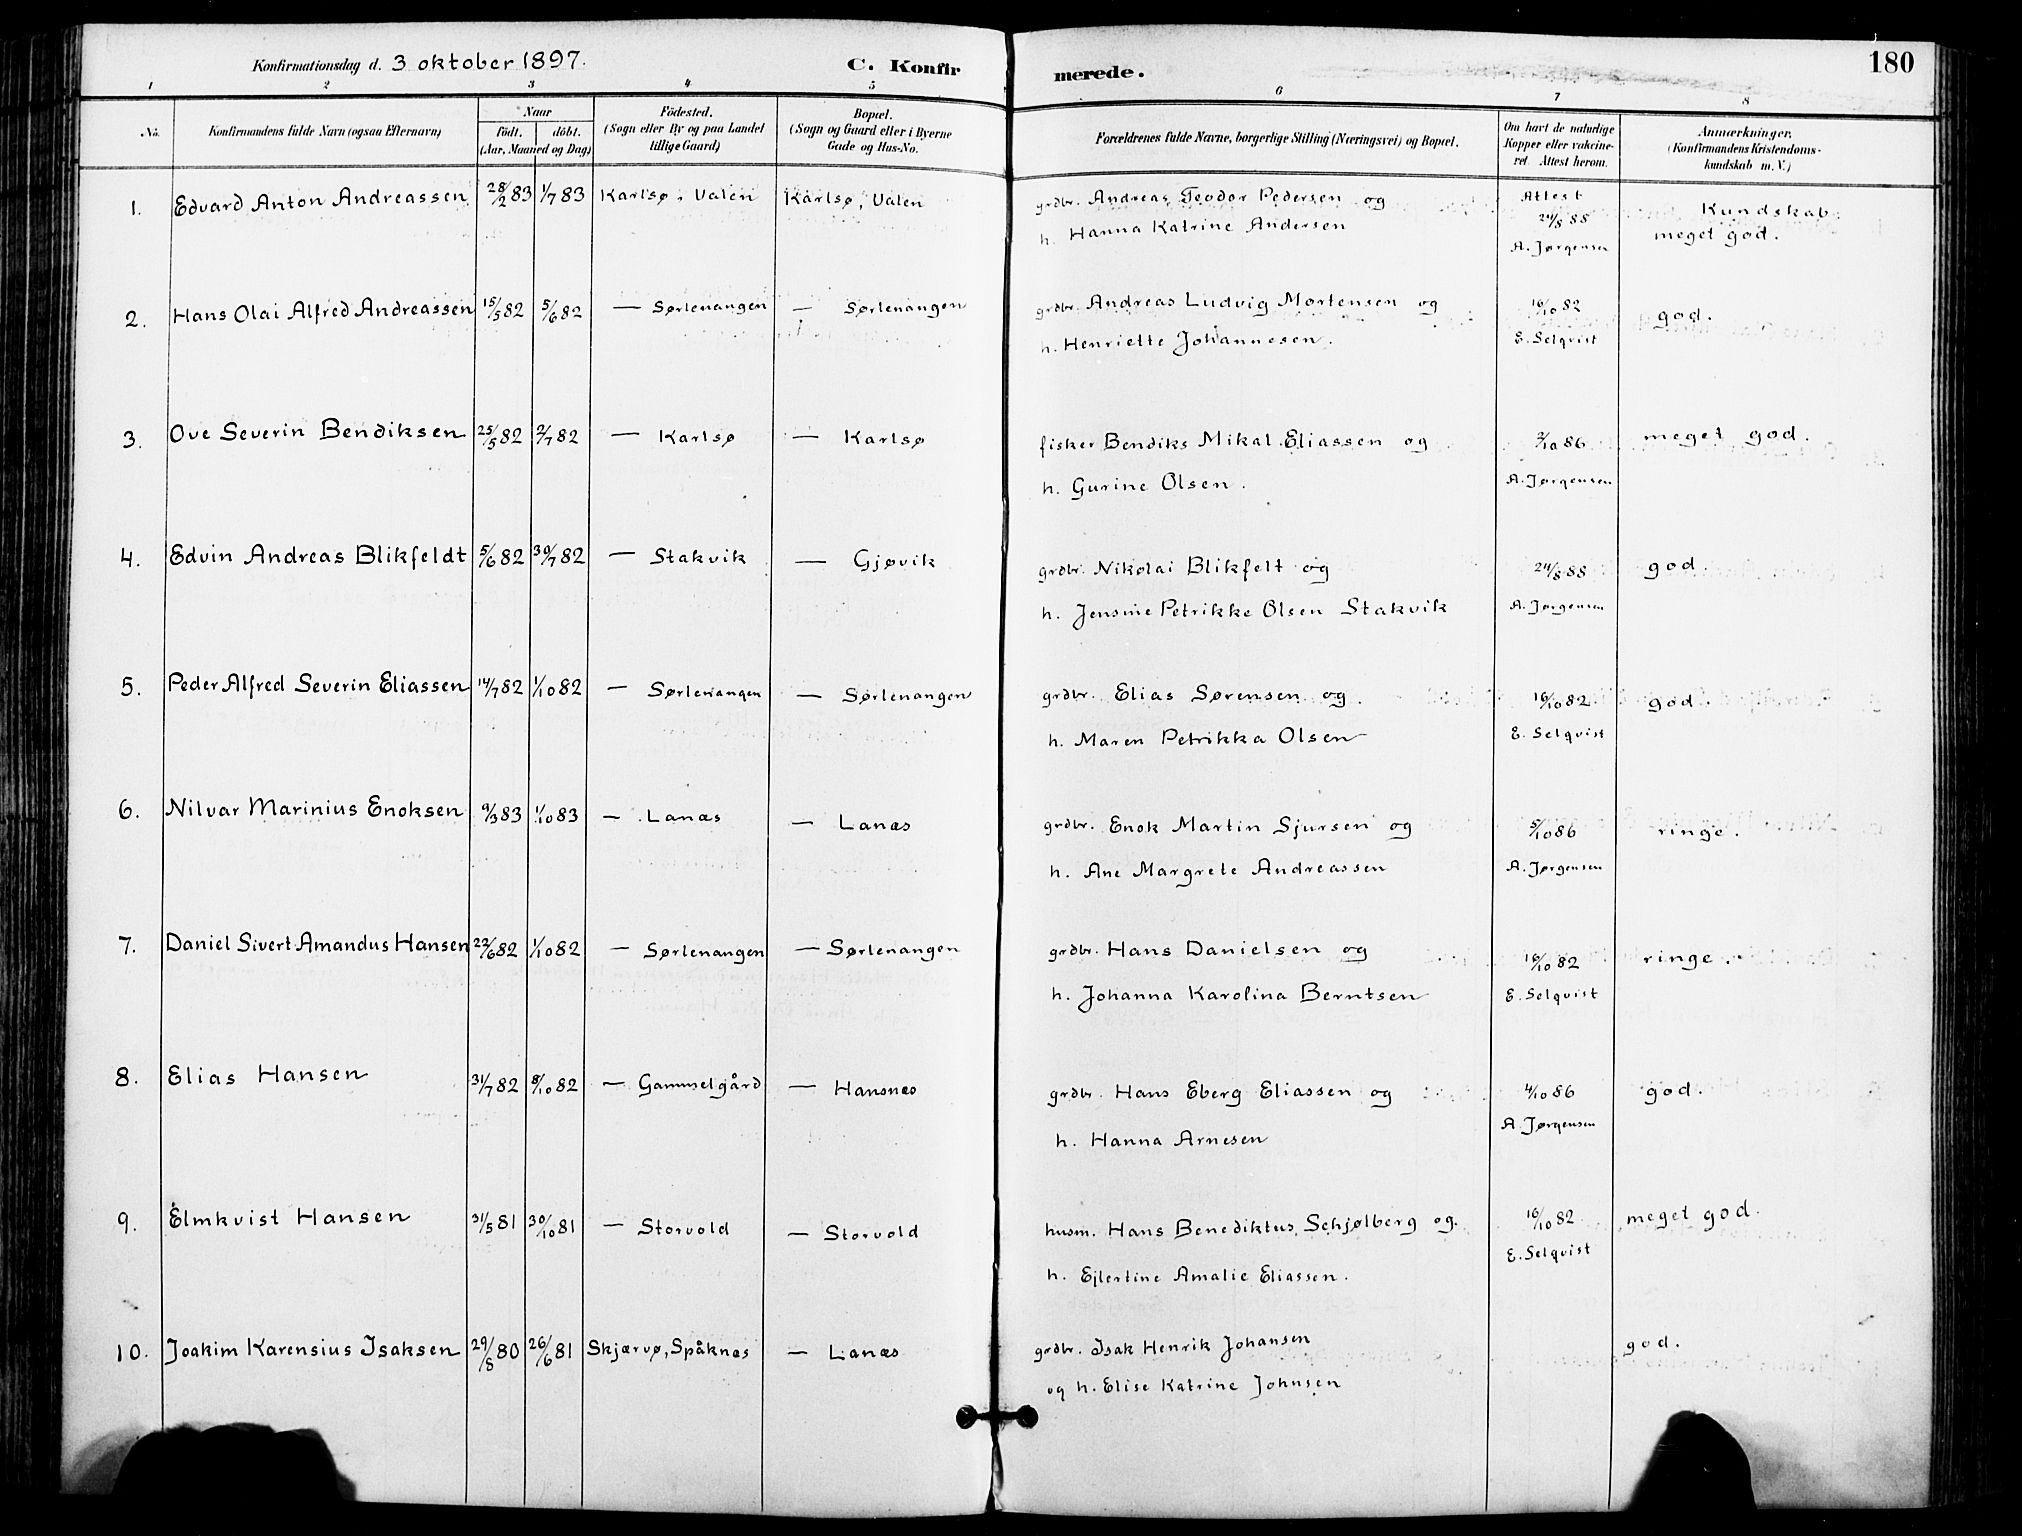 Konfirmationsdag d. 3 oktober 1897. C. Konfirmerede. 180
1 2 3 4 5 6 7 8
No. Konfirmandens fulde Navn (ogsaa Efternavn) Naar födt. döbt. (Aar, Maaned og Dag) Födested. (Sogn eller By og paa Landet tillige Gaard) Bopæl. (Sogn og Gaard eller i Byerne Gade og Hus-No. Forældrenes fulde Navne, borgerlige Stilling (Næringsvei) og Bopæl. Om havt de naturlige Kopper eller vakcineret. Attest herom. Anmærkninger. (Konfirmandens Kristendomskundskab m. V.)
1. Edvard Anton Andreassen 28/2 83 1/7 83 Karlsø, Valen Karlsø, Valen grdbr. Andreas Teodor Pedersen og Attest 24/8 88 Kundskab
h. Hanna Katrine Andersen A. Jørgensen meget god.
2. Hans Olai Alfred Andreassen 15/5 82 5/6 82 — Sørlenangen — Sørlenangen grdbr. Andreas Ludvig Mortensen og 16/10 82 god.
h. Henriette Johannesen. E. Selqvist
3. Ove Severin Bendiksen 25/5 82 2/7 82 — Karlsø — Karlsø fisker Bendiks Mikal Eliassen og 2/10 86 meget god.
h. Gurine Olsen. A. Jørgensen
4. Edvin Andreas Blikfeldt 5/6 82 30/7 82 — Stakvik — Gjøvik grdbr. Nikolai Blikfelt og 24/8 88 god.
h. Jensine Petrikke Olsen Stakvik A. Jørgensen
5. Peder Alfred Severin Eliassen 14/7 82 1/10 82 — Sørlenangen — Sørlenangen grdbr. Elias Sørensen og 16/10 82 god.
h. Maren Petrikka Olsen E. Selqvist
6. Nilvar Marinius Enoksen 9/3 83 1/10 83 — Lanæs — Lanæs grdbr. Enok Martin Sjursen og 5/10 86 ringe.
h. Ane Margrete Andreassen A. Jørgensen
7. Daniel Sivert Amandus Hansen 22/6 82 1/10 82 — Sørlenangen — Sørlenangen grdbr. Hans Danielsen og 16/10 82 ringe.
h. Johanna Karolina Berntsen E. Selqvist
8. Elias Hansen 31/7 82 8/10 82 — Gammelgård — Hansnæs grdbr. Hans Eberg Eliassen og 4/10 86 god.
h. Hanna Arnesen A. Jørgensen
9. Elmkvist Hansen 31/5 81 30/10 81 — Storvold — Storvold husm. Hans Benediktus Schjølberg og. 16/10 82 meget god.
h. Ejlertine Amalie Eliassen. E. Selqvist
10. Joakim Karensius Isaksen 29/8 80 26/6 81 Skjærvø, Spåknæs — Lanæs grdbr. Isak Henrik Johansen god.
og h. Elise Katrine Johnsen